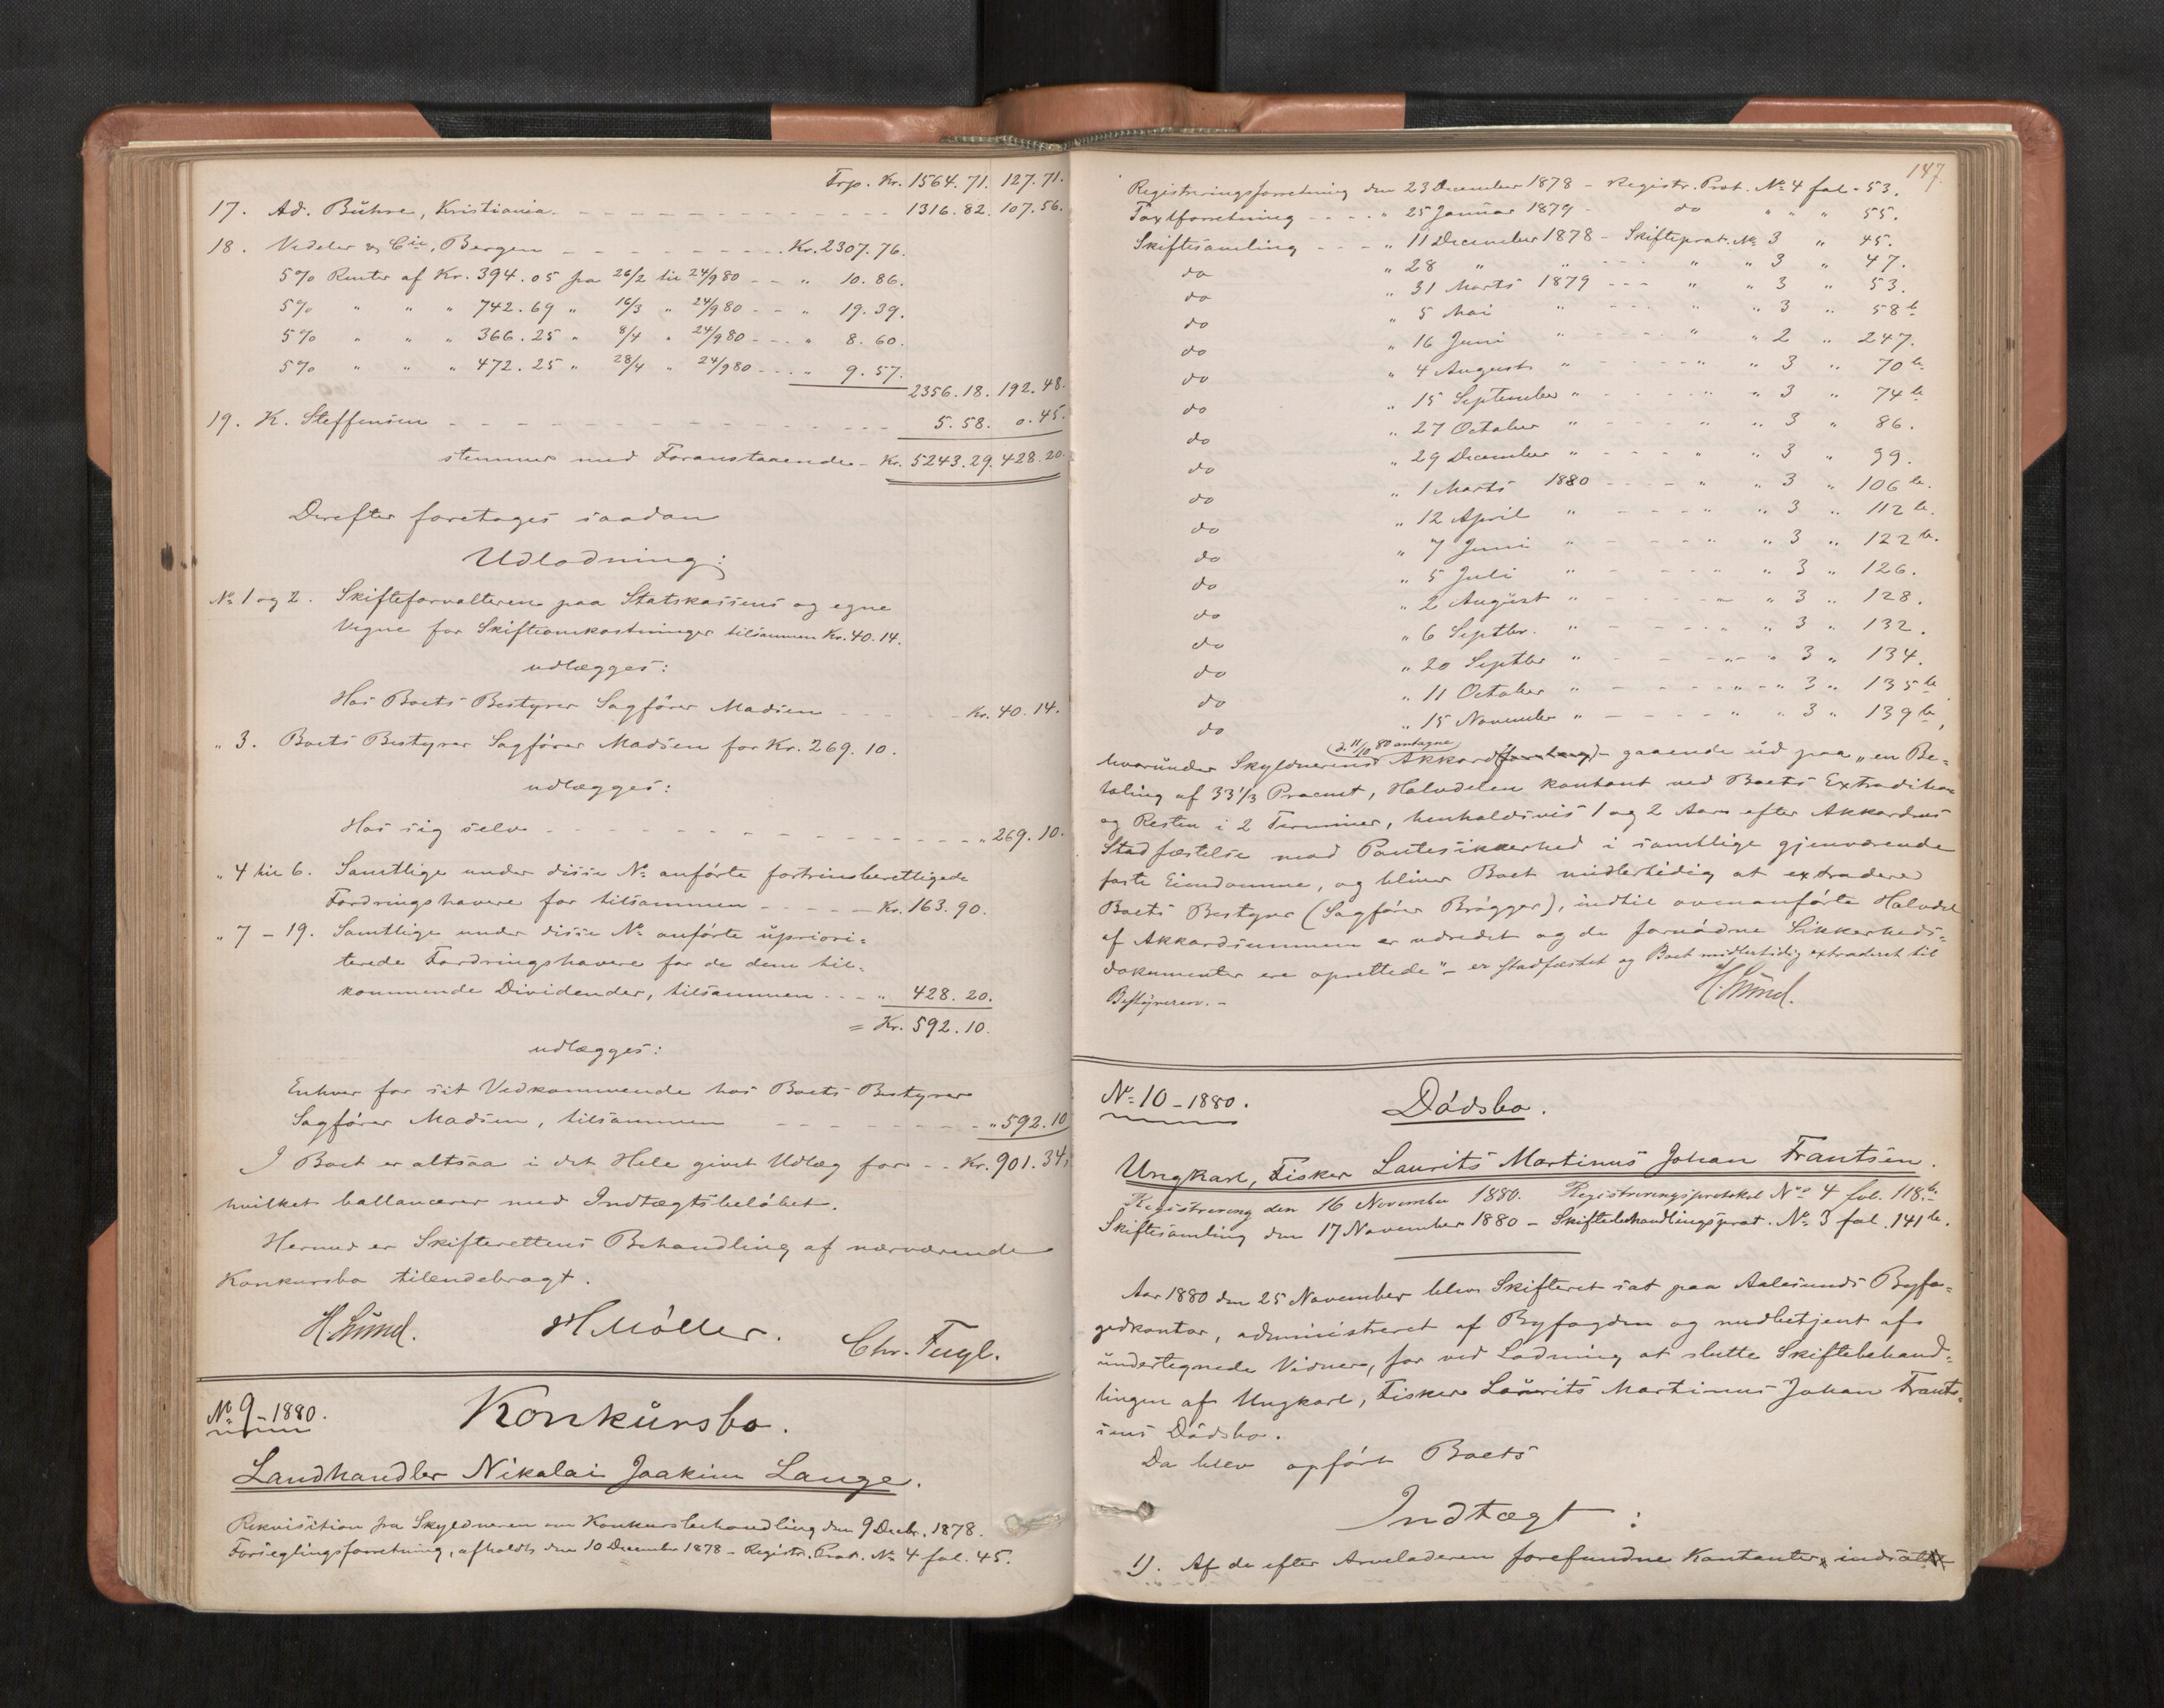 Trp. Kr. 1564.71. 127.71.
17. Ad. Bühre, Kristiania - - - 1316.82. 107.56.
18. Vedeler & Cie, Bergen - - - Kr. 2307.76.
5% Renter af Kr. 394.05 fra 26/2 til 24/9 80 - - " 10.86.
5% " " " 742.69 " 16/3 " 24/9 80 - - " 19.39.
5% " " " 366.25 " 8/4 " 24/9 80 - - - " 8.60.
5% " " " 472.25 " 28/4 " 24/9 80 - - - " 9.57.
2356.18. 192.48.
19. K. Steffensen - - - 5.58. 0.45.
stemmer med Foranstaaende - Kr. 5243.29. 428.20.
Derefter foretoges saadan
Udlodning:
No 1 og 2. Skifteforvalteren paa Statskassens og egne
Vegne for Skifteomkostninger tilsammen Kr. 40.14.
udlægges:
Hos Boets Bestyrer Sagfører Madsen - - - Kr. 40.14.
" 3. Boets Bestyrer Sagfører Madsen for Kr. 269.10.
udlægges:
Hos sig selv - - - " 269.10.
" 4 til 6. Samtlige under disse No anførte fortrinsberettigede
Fordringshavere for tilsammen - - - Kr. 163.90.
" 7 - 19. Samtlige under disse No anførte upriori=
terede Fordringshavere for de dem til=
kommende Dividender, tilsammen - - - " 428.20.
= Kr. 592.10.
udlægges:
Enhver for sit Vedkommende hos Boets Bestyrer
Sagfører Madsen, tilsammen - - - " 592.10
I Boet er altsaa i det Hele givet Udlæg for - - Kr. 901.34,
hvilket ballancerer med Indtægtsbeløbet.
Hermed er Skifterettens Behandling af nærværende
Konkursbo tilendebragt.
H. Lund. H Møller. Chr. Fugl.
No 9 - 1880. Konkursbo.
Landhandler Nikolai Joakim Lange.
Rekvisition fra Skyldneren om Konkursbehandling den 9 Decbr. 1878.
Forseglingsforretning, afholdt den 10 December 1878 - Registr. Prot. No 4 fol. 45.
147.
Registreringsforretning den 23 December 1878 - Registr. Prot. No 4 fol - 53.
Taxtforretning - - - " 25 Januar 1879 - do " " " 55.
Skiftesamling - - - " 11 December 1878 - Skifteprot. No 3 " 45.
do " 28 " " - - - " " 3 " 47.
do " 31 Marts 1879 - - - " " 3 " 53.
do " 5 Mai " - - - " " 3 " 58 b.
do " 16 Juni " - - - " " 2 " 247.
do " 4 August " - - - " " 3 " 70 b.
do " 15 September " - - - " " 3 " 74 b
do " 27 October " - - - " " 3 " 86.
do " 29 December " - - - " " 3 " 99.
do " 1 Marts 1880 - - - " " 3 " 106 b.
do " 12 April " - - - " " 3 " 112 b.
do " 7 Juni " - - - " " 3 " 122 b.
do " 5 Juli " - - - " " 3 " 126.
do " 2 August " - - - " " 3 " 128.
do " 6 Septbr. " - - - " " 3 " 132.
do " 20 Septbr " - - - " " 3 " 134.
do " 11 October " - - - " " 3 " 135 b
do " 15 November " - - - " " 3 " 139 b,
(d. 11/10 80 antagne)
hvorunder Skyldnerens Akkord(forslag) - gaaende ud paa "en Be=
taling af 33 1/3 Procent, Halvdelen kontant ved Boets Extradition
og Resten i 2 Terminer, henholdsvis 1 og 2 Aar efter Akkordens
Stadfæstelse mod Pantesikkerhed i samtlige gjenværende
faste Eiendomme, og bliver Boet midlertidig at extradere
Boets Bestyrer (Sagfører Brøgger), indtil ovenanførte Halvdel
af Akkordsummen er udredet og de fornødne Sikkerheds=
dokumenter ere oprettede" - er stadfæstet og Boet midlertidig extraderet til
Bestyreren. - H. Lund.
No 10 - 1880. Dødsbo.
Ungkarl, Fisker Laurits Martinus Johan Frantsen.
Registrering den 16 November 1880. Registreringsprotokol No 4 fol. 118 b.
Skiftesamling den 17 November 1880 - Skiftebehandlingsprot. No 3 fol. 141 b.
Aar 1880 den 25 November blev Skifteret sat paa Aalesunds Byfo=
gedkontor, administreret af Byfogden og medbetjent af
undertegnede Vidner, for ved Lodning at slutte Skiftebehand=
lingen af Ungkarl, Fisker Laurits Martinus Johan Frant=
sens Dødsbo.
Da blev opført Boets
Indtægt:
1). Af de efter Arveladeren forefundne Kontanter, indsat